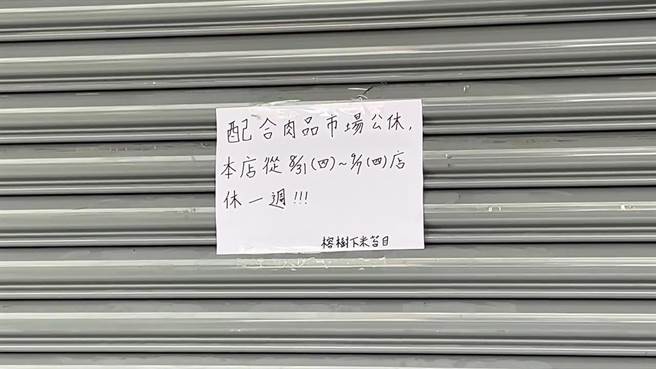 配合肉品市場公休，
本店從8/31(四)~9/7(四)店
休一週!!!
榕樹下米苔目